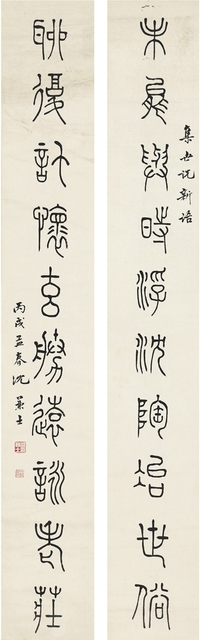 未能與時浮沈陶埳世俗
集世說新語
聊復託懷玄勝遠詠老莊
丙戌孟春沈兼士